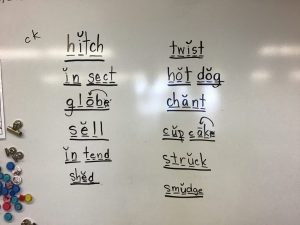 ck
hĭtch
ĭn sĕct
glōbe
sĕll
ĭn tĕnd
shĕd
twĭst
hŏt dŏg
chănt
cŭp cāke
strŭck
smŭdge